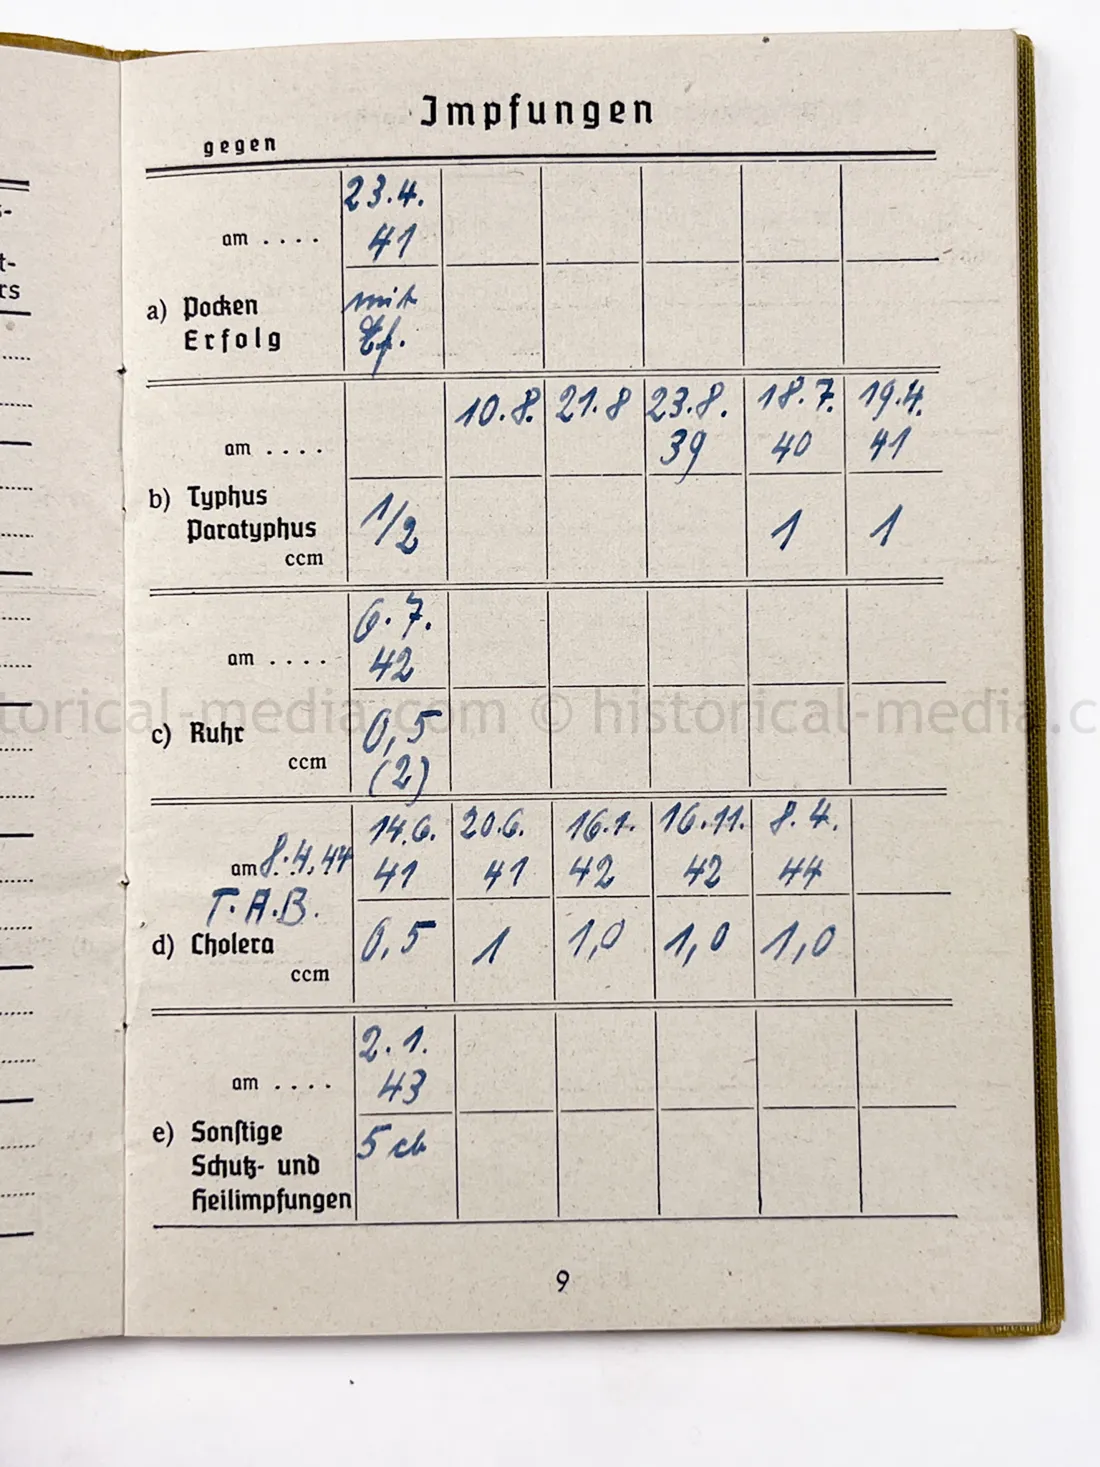 Impfungen
gegen
23.4.
am .... 41
a) Pocken mit
Erfolg Ef.
10.8. 21.8 23.8. 18.7. 19.4.
am .... 39 40 41
b) Typhus
Paratyphus 1/2 1 1
ccm
6.7.
am .... 42
c) Ruhr 0,5
ccm (2)
14.6. 20.6. 16.1. 16.11. 8.4.
am 8.4.44 41 41 42 42 44
T.A.B.
d) Cholera 0,5 1 1,0 1,0 1,0
ccm
2.1.
am .... 43
e) Sonstige 5 cb
Schutz- und
Heilimpfungen
9
s-
t-
rs
torical-media.com © historical-media.c